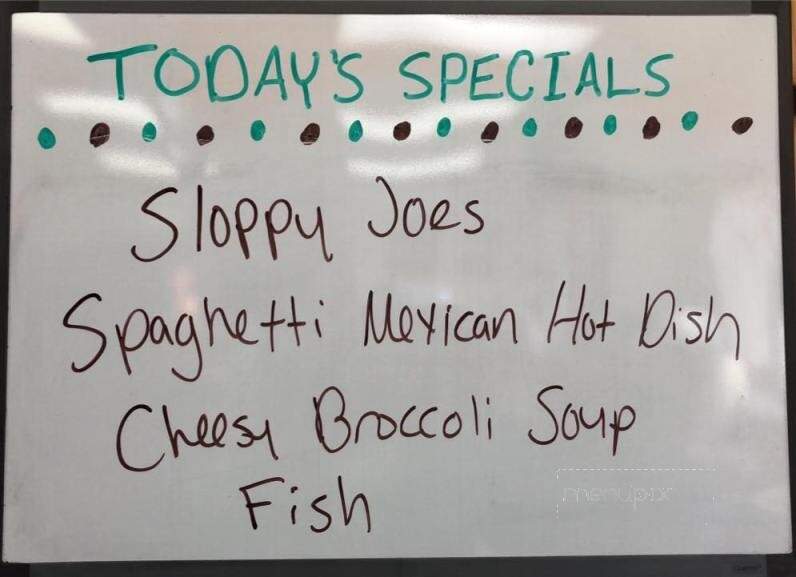 TODAY'S SPECIALS
Sloppy Joes
Spaghetti Mexican Hot Dish
Cheesy Broccoli Soup
Fish
menupix